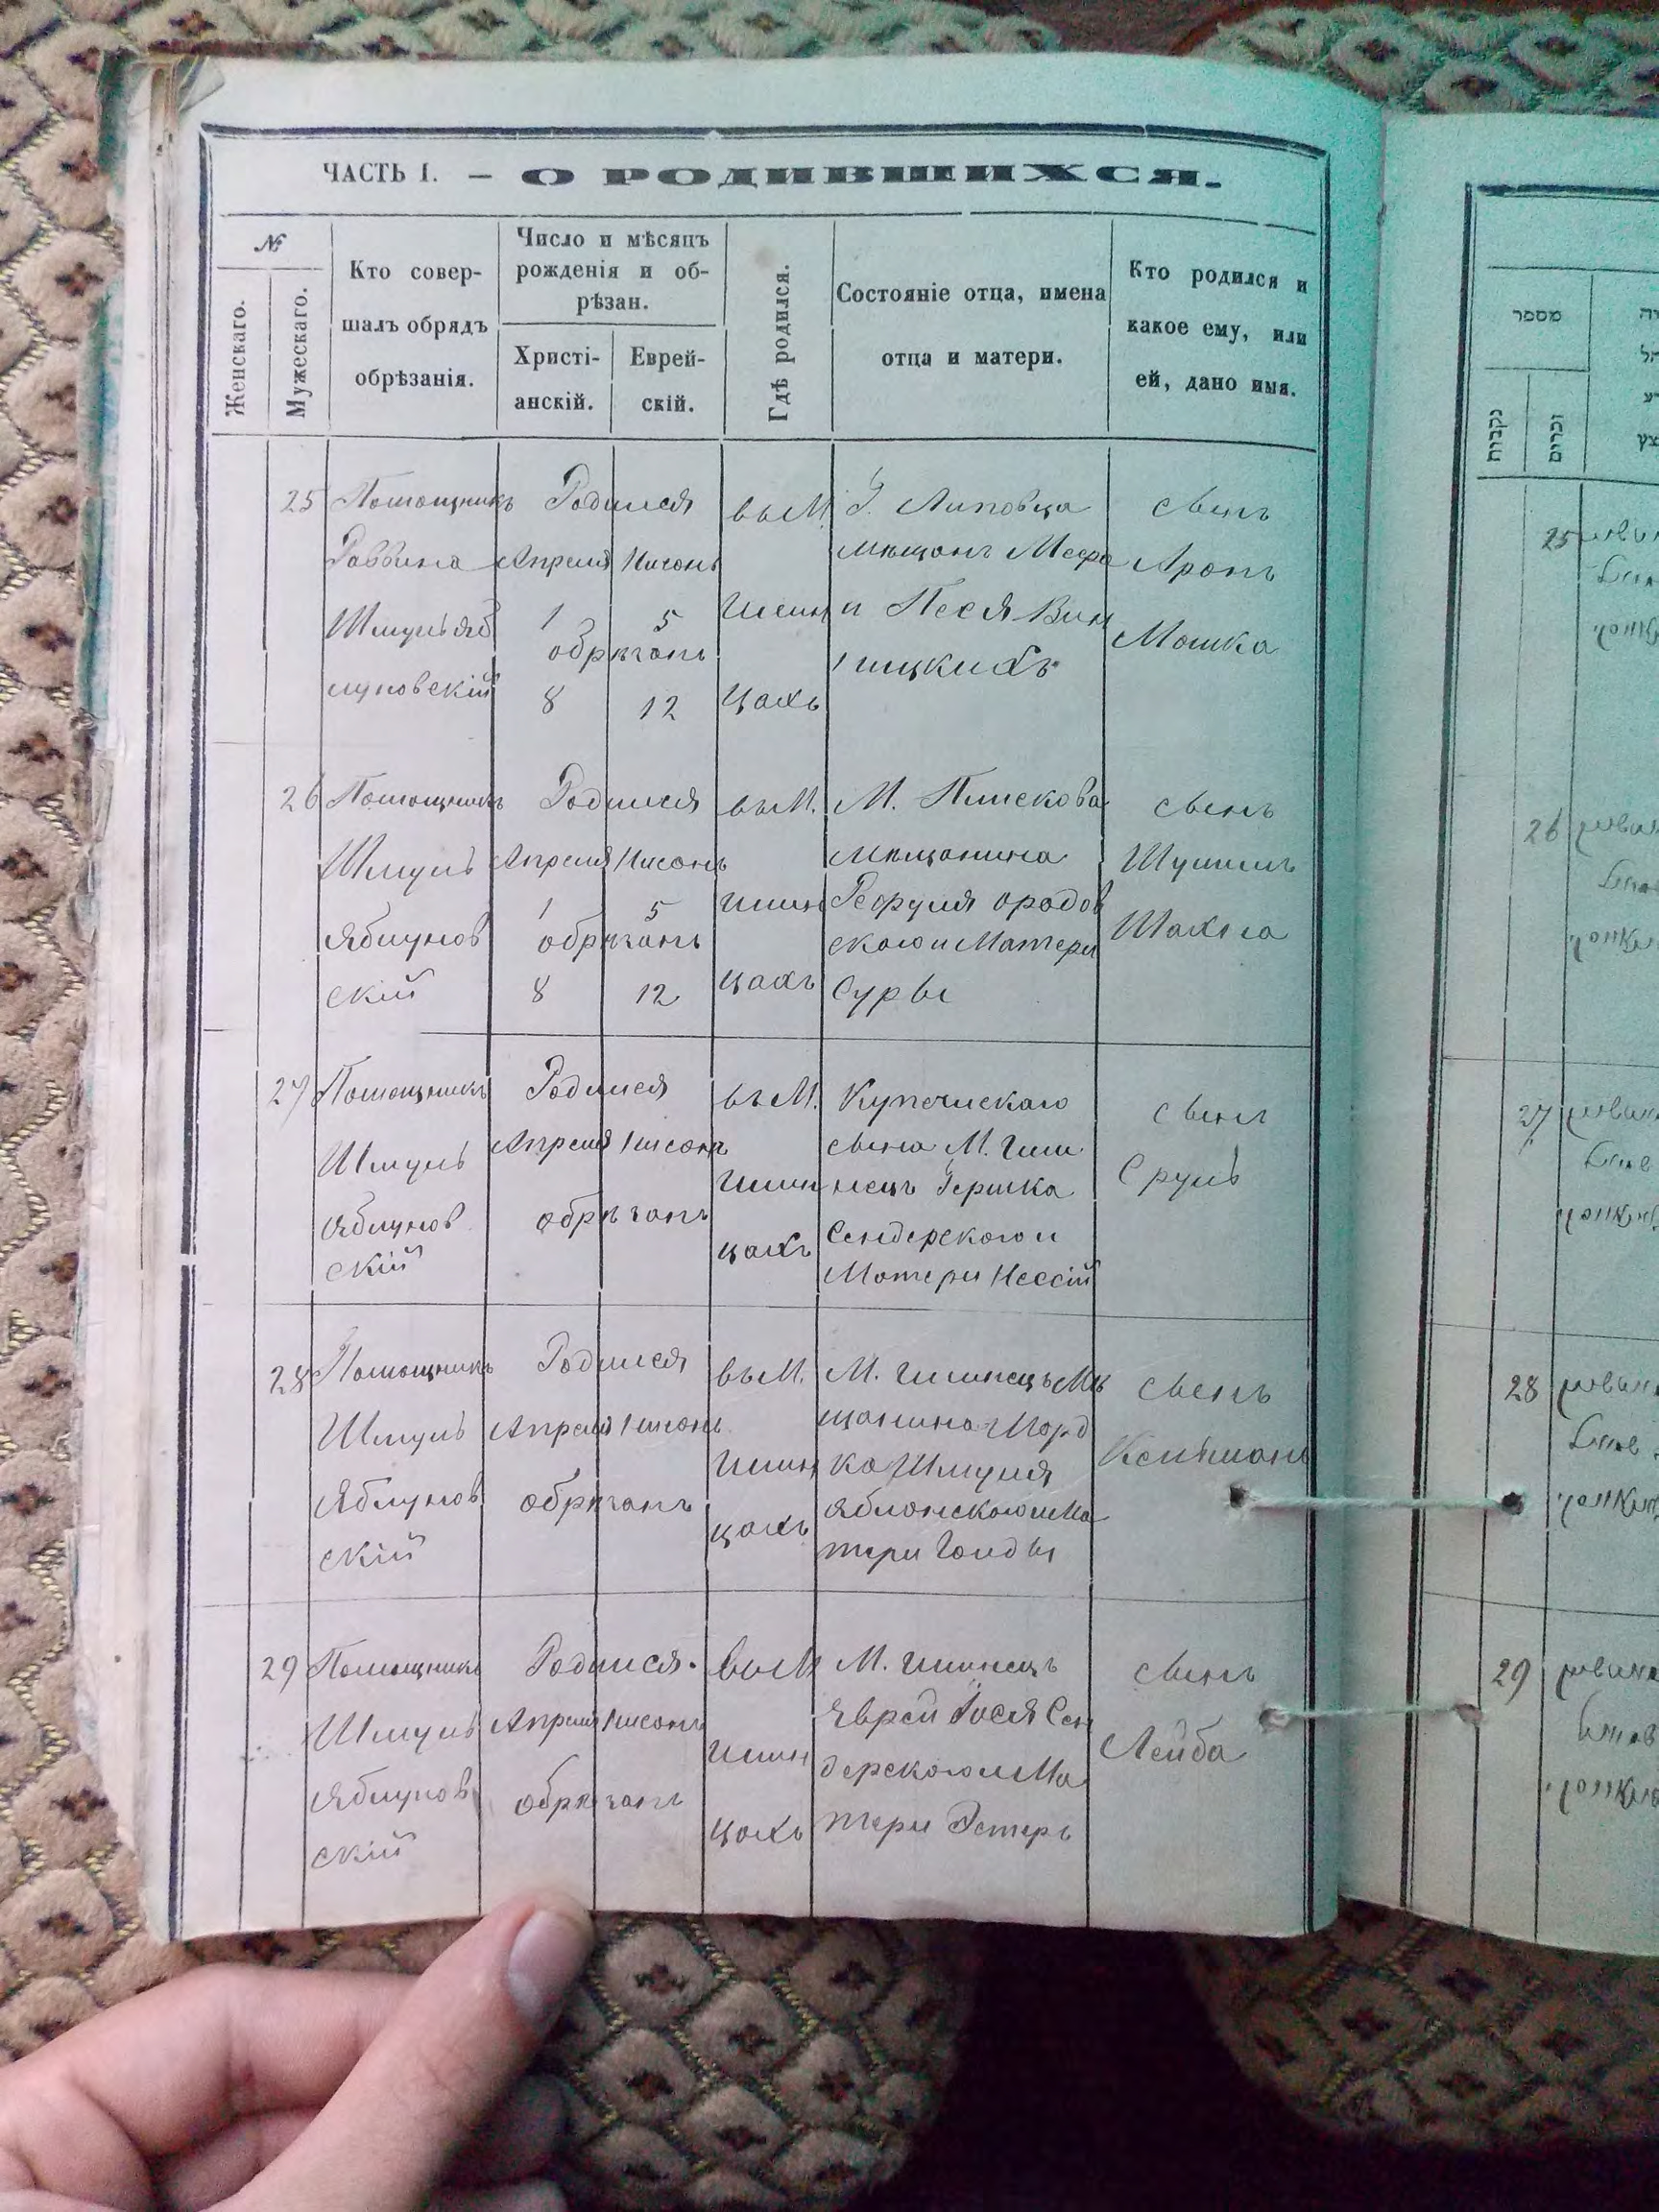 ЧАСТЬ I. — О РОДИВШИХСЯ.
№
Женскаго.
Мужескаго.
Кто совер-
шалъ обрядъ
обрѣзанія.
Число и мѣсяцъ
рожденія и об-
рѣзан.
Христі-
анскій.
Еврей-
скій.
Гдѣ родился.
Состояніе отца, имена
отца и матери.
Кто родился и
какое ему, или
ей, дано имя.
25
Помощникъ
Раввина
Шмуль Яб
луновскій
Родился
Апреля Нисонъ
1 5
обрѣзанъ
8 12
въ М.
Илин
цахъ
Г. Липовца
мѣщанъ
и Песя Вин
ницкихъ
сынъ
Аронъ
Мошка
26
Помощникъ
Шмуль
Яблунов
скій
Родился
Апреля Нисонъ
1 5
обрѣзанъ
8 12
въ М.
Илин
цахъ
М. Плискова
мѣщанина
скаго и Матери
Суры
сынъ
27
Помощникъ
Шмуль
Яблунов
скій
Родился
Апреля Нисонъ
обрѣзанъ
въ М.
Илин
цахъ
Купеческаго
сына М. Или
нецъ Гершка
Сендерскаго и
Матери Нессій
сынъ
Сруль
28
Помощникъ
Шмуль
Яблунов
скій
Родился
Апреля Нисонъ
обрѣзанъ
въ М.
Илин
цахъ
М. Илинецъ Мѣ
щанина Морд
ка Шмуля
Яблонскаго и Ма
тери Голды
сынъ
Кельманъ
29
Помощникъ
Шмуль
Яблунов
скій
Родился.
Апреля Нисонъ
обрѣзанъ
въ М
Илин
цахъ
М. Илинецъ
Еврей Іося Сен
дерскаго и Ма
тери Эстеръ
сынъ
Лейба
מספר
נקבות
זכרים
25
26
27
28
29